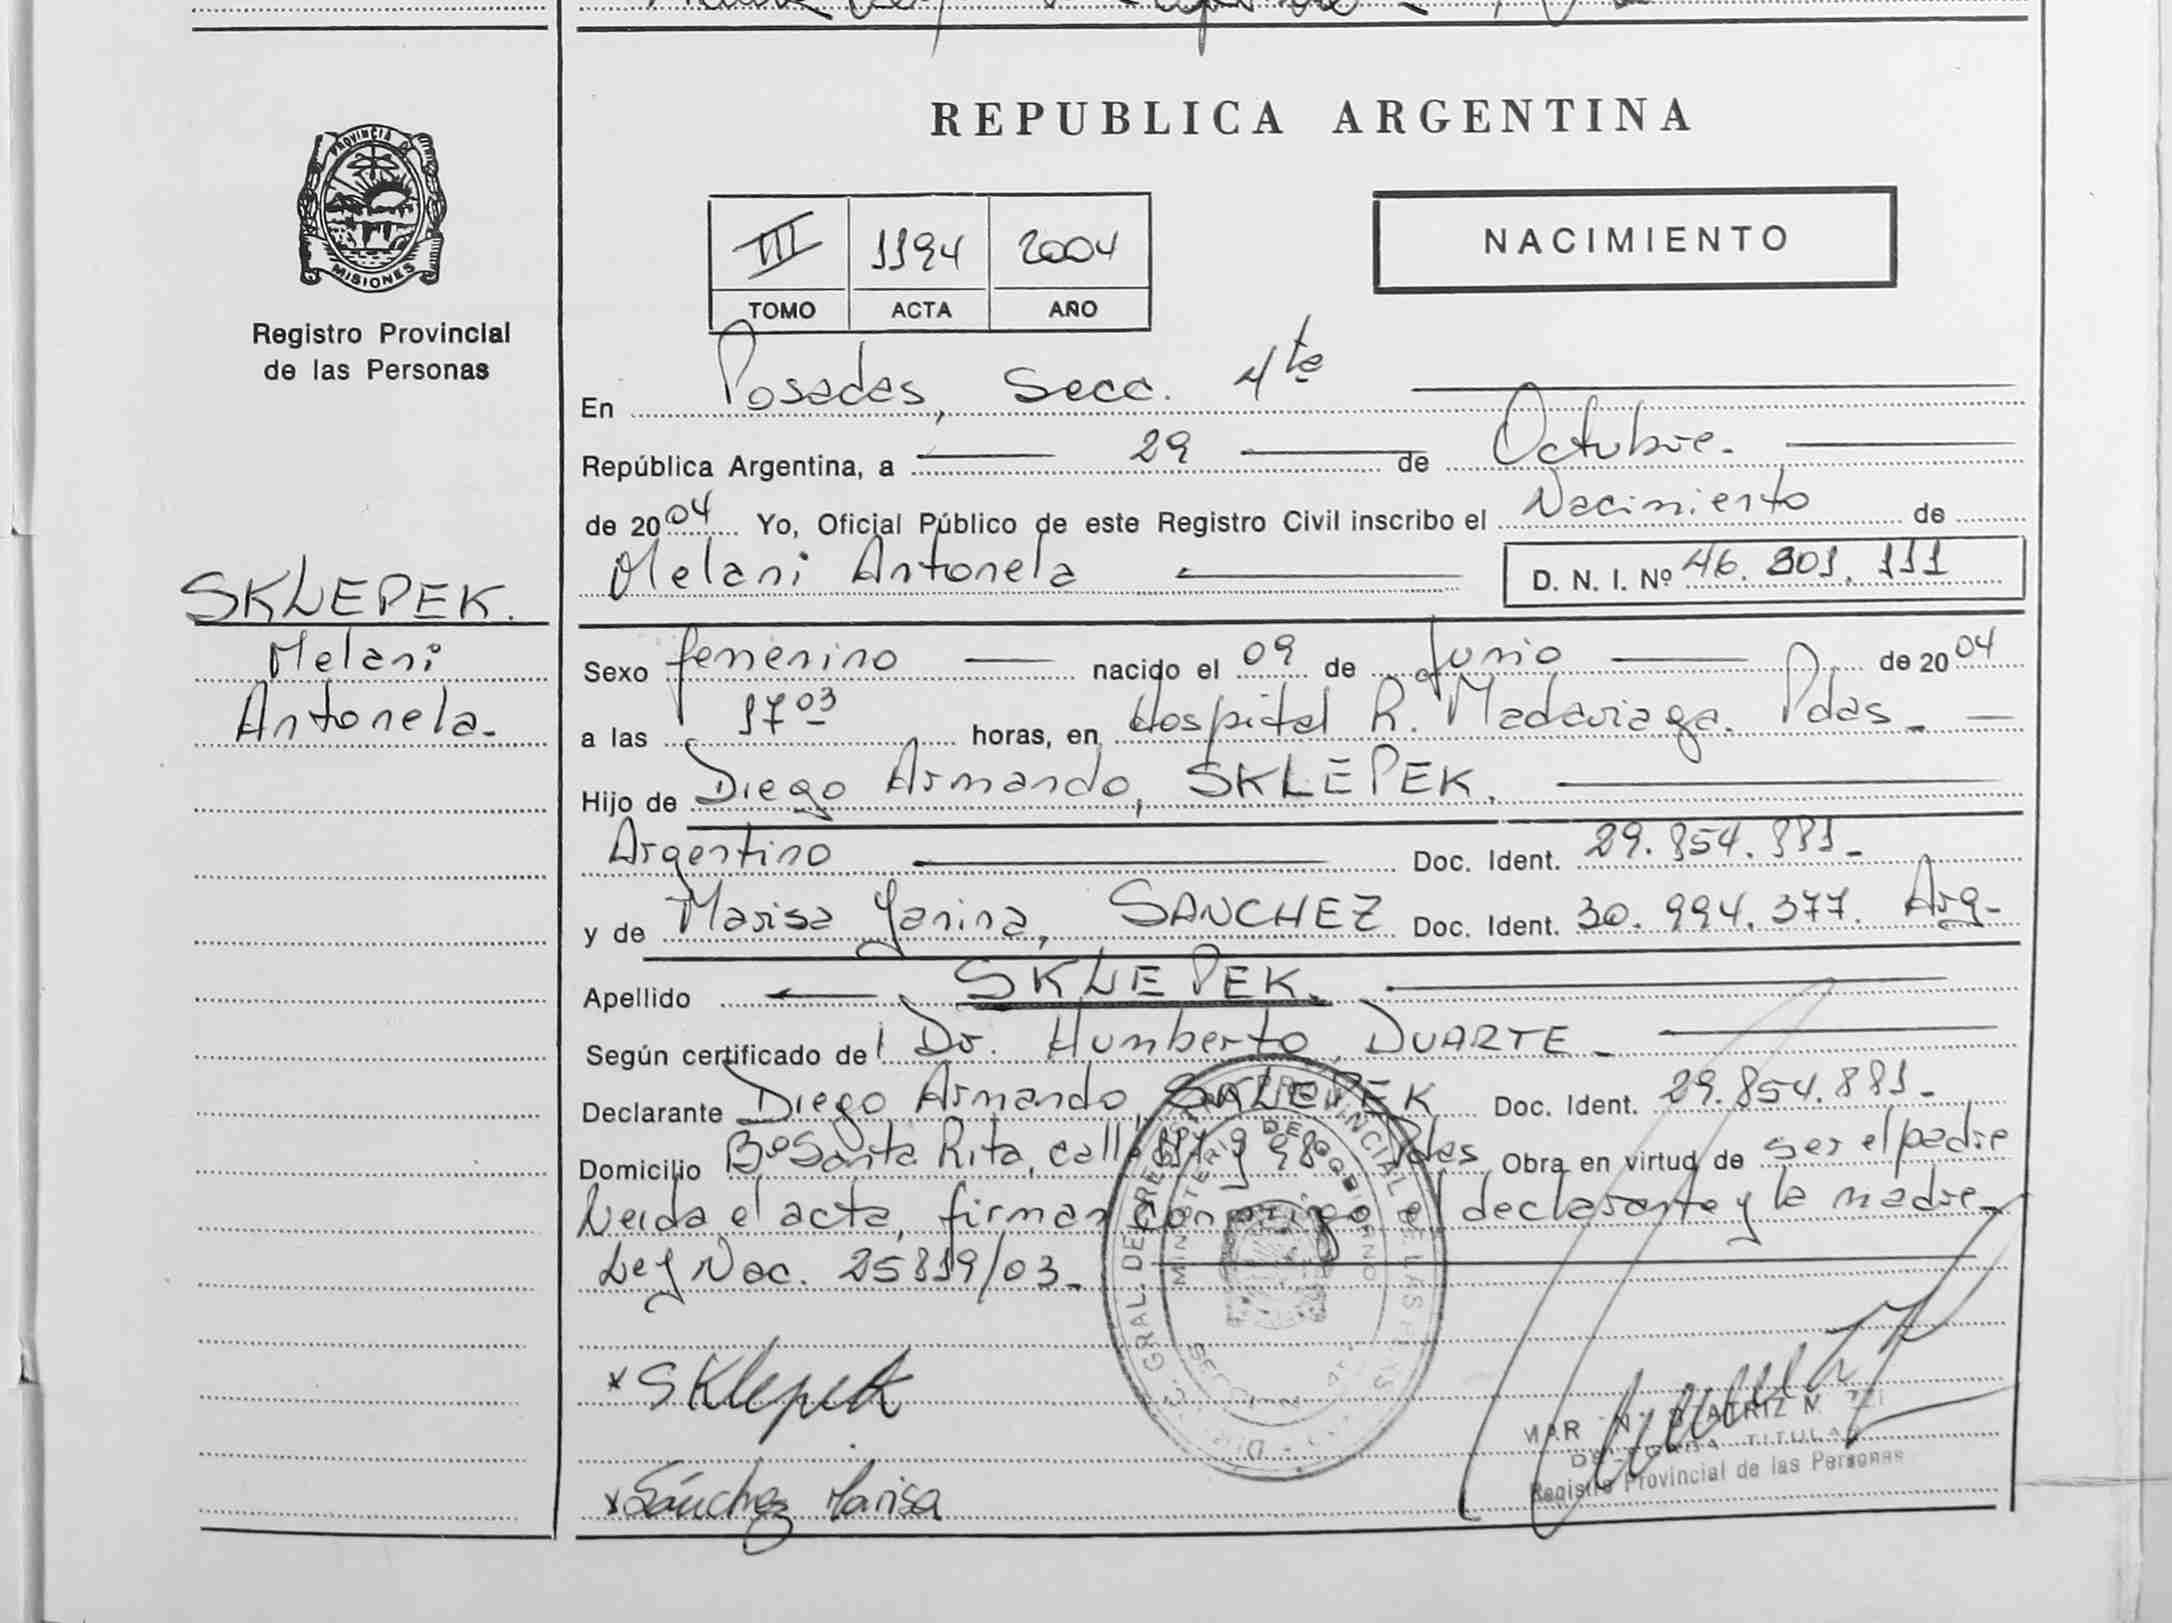 REPUBLICA ARGENTINA
PROVINCIA DE
MISIONES
Registro Provincial
de las Personas
III 1194 2004
TOMO ACTA AÑO
NACIMIENTO
En Posadas, Secc. 4ta
República Argentina, a 29 de Octubre.
de 2004 Yo, Oficial Público de este Registro Civil inscribo el Nacimiento de
Melani Antonela D. N. I. Nº 46.801.111
SKLEPEK.
Melani
Antonela.
Sexo femenino nacido el 09 de Junio de 2004
a las 17 03 horas, en Hospital R. Madariaga. Pdas.
Hijo de Diego Armando, SKLEPEK.
Argentino Doc. Ident. 29.854.881.
y de Marisa Yanina, SANCHEZ Doc. Ident. 30.994.377. Arg.
Apellido SKLEPEK.
Según certificado de Dr. Humberto, DUARTE.
Declarante Diego Armando, SKLEPEK Doc. Ident. 29.854.881.
Domicilio Bº Santa Rita, calle 98 Pdas Obra en virtud de ser el padre
Leida el acta, firman conmigo el declarante y la madre.
Ley Nac. 25819/03.
SKlepek
Sánchez Marisa
BEATRIZ
TITULAR
Registro Provincial de las Personas